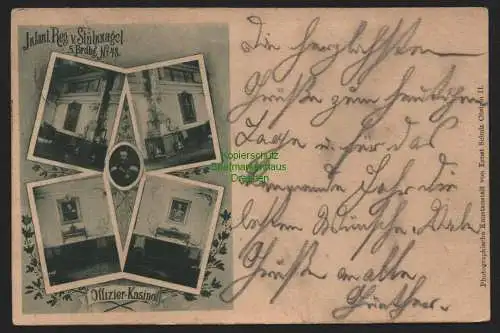 Infant. Reg. v. Stülpnagel
5. Brdbg. Nº 48.
Offizier-Kasino
Die herzlichsten
Grüße zum heutigen
Tage u. für das
kommende Jahr die
besten Wünsche. Viele
Grüße an alle
Günther.
Photographische Kunstanstalt von Ernst Scholz Cüstrin II.
Kopierschutz
Briefmarkenhaus
Dresden